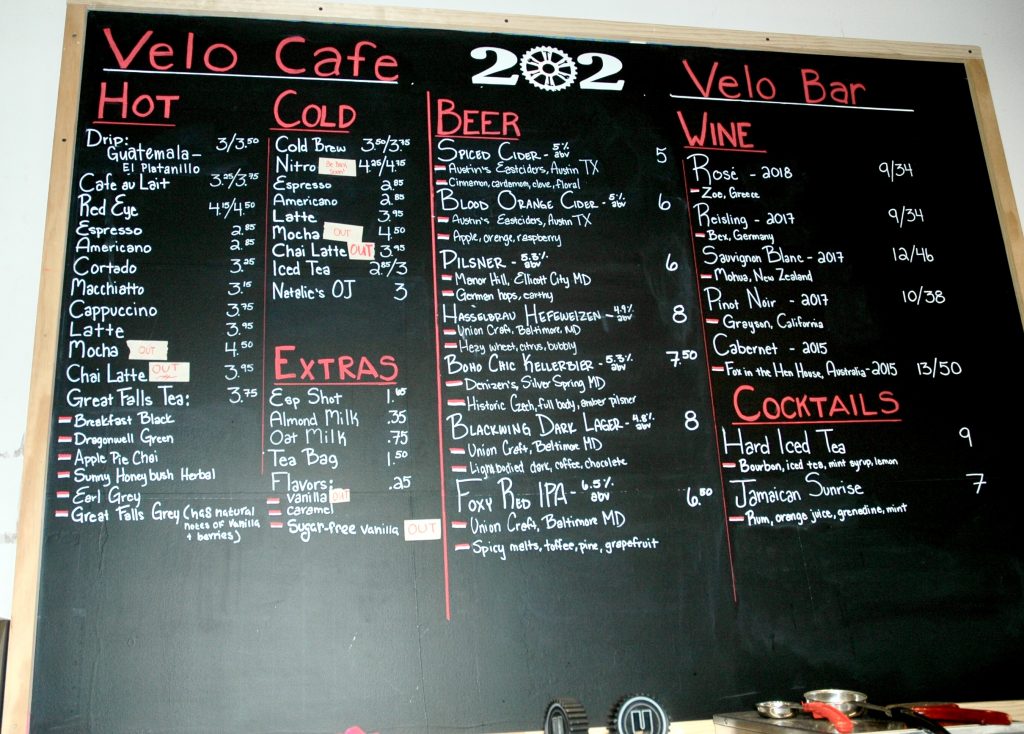 Velo Cafe
202
Velo Bar
HOT
Drip: 3/3.50
Guatemala-
El Platanillo
Cafe au Lait 3.25/3.75
Red Eye 4.15/4.50
Espresso 2.85
Americano 2.85
Cortado 3.25
Macchiatto 3.15
Cappuccino 3.75
Latte 3.95
Mocha OUT 4.50
Chai Latte OUT 3.95
Great Falls Tea: 3.75
Breakfast Black
Dragonwell Green
Apple Pie Chai
Sunny Honeybush Herbal
Earl Grey
Great Falls Grey (has natural
notes of vanilla
+ berries)
COLD
Cold Brew 3.50/3.75
Nitro Be Back Soon! 4.25/4.75
Espresso 2.85
Americano 2.85
Latte 3.95
Mocha OUT 4.50
Chai Latte OUT 3.95
Iced Tea 2.85/3
Natalie's OJ 3
EXTRAS
Esp Shot
Almond Milk .35
Oat Milk .75
Tea Bag 1.50
Flavors: .25
Vanilla OUT
Caramel
Sugar-free vanilla OUT
BEER
SPICED CIDER - 5% abv 5
Austin's Eastciders, Austin TX
Cinnamon, cardamom, clove, floral
BLOOD ORANGE CIDER - 5% abv 6
Austin's Eastciders, Austin TX
Apple, orange, raspberry
PILSNER - 5.3% abv 6
Manor Hill, Ellicott City MD
German hops, earthy
HASSELBRAU HEFEWEIZEN - 4.9% abv 8
Union Craft, Baltimore MD
Hazy wheat, citrus, bubbly
BOHO CHIC KELLERBIER - 5.3% abv 7.50
Denizen's, Silver Spring MD
Historic Czech, full body, amber pilsner
BLACKWING DARK LAGER - 4.8% abv 8
Union Craft, Baltimore MD
Light bodied dark, coffee, chocolate
FOXY RED IPA - 6.5% abv 6.50
Union Craft, Baltimore MD
Spicy malts, toffee, pine, grapefruit
WINE
Rosé - 2018 9/34
Zoe, Greece
Reisling - 2017 9/34
Bex, Germany
Sauvignon Blanc - 2017 12/46
Mohua, New Zealand
Pinot Noir - 2017 10/38
Grayson, California
Cabernet - 2015
Fox in the Hen House, Australia - 2015 13/50
COCKTAILS
Hard Iced Tea 9
Bourbon, iced tea, mint syrup, lemon
Jamaican Sunrise 7
Rum, orange juice, grenadine, mint